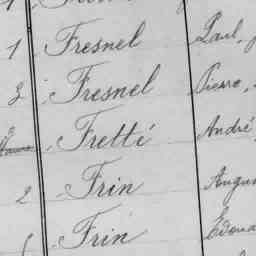 1 Fresnel Paul,
3 Fresnel Pierre,
Fretté André
2 Frin Augus
Frin Edoua